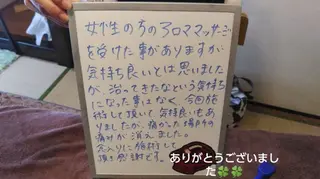 女性の方のアロママッサージ
を受けた事がありますが
気持ち良いとは思いました
が、治ってきたなという気持ち
になった事はなく、今回施
術して頂いて、気持良いもあ
りましたが、痛かった場所の
痛みが消えました。
念入りに施術して
頂き感謝です。
ありがとうございまし
た🍀🍀